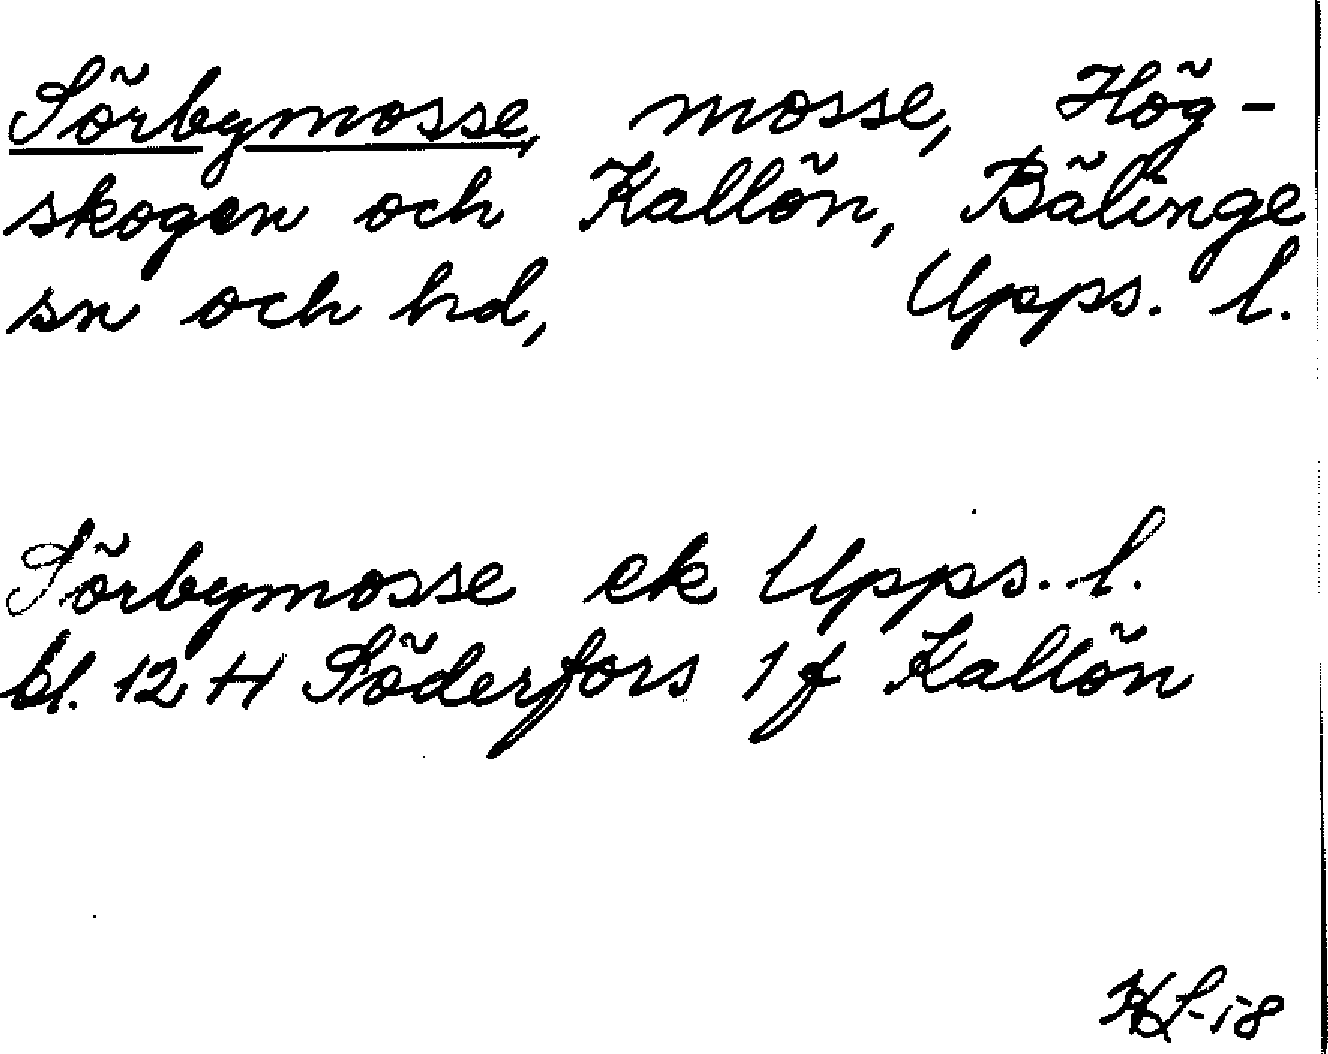 Sörbymosse, mosse, Hög-
skogen och Kallön, Bälinge
sn och hd, Upps. l.
Sörbymosse ek Upps. l.
bl. 12 H Söderfors 1 f Kallön